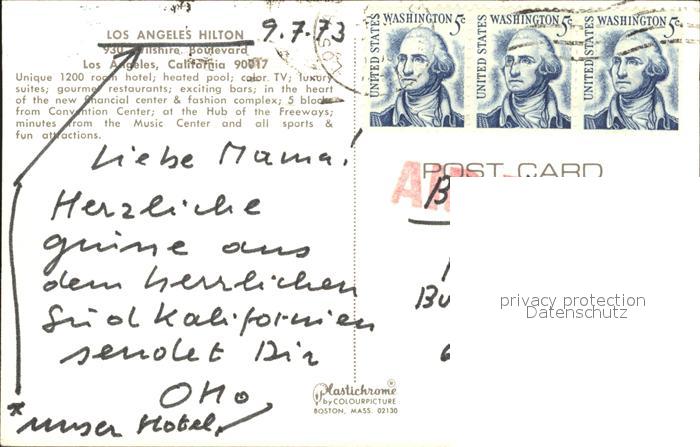 LOS ANGELES HILTON
9.7.73
930 Wilshire Boulevard
Los Angeles, California 90017
Unique 1200 room hotel; heated pool; color TV; luxury
suites; gourmet restaurants; exciting bars; in the heart
of the new financial center & fashion complex; 5 blocks
from Convention Center; at the Hub of the Freeways;
minutes from the Music Center and all sports &
fun attractions.
UNITED STATES WASHINGTON 5c
UNITED STATES WASHINGTON 5c
UNITED STATES WASHINGTON 5c
POST CARD
Liebe Mama!
Herzliche
grüsse aus
dem herrlichen
Südkalifornien
sendet Dir
Otto
* unser Hotel
privacy protection
Datenschutz
Plastichrome
by COLOURPICTURE
BOSTON, MASS. 02130